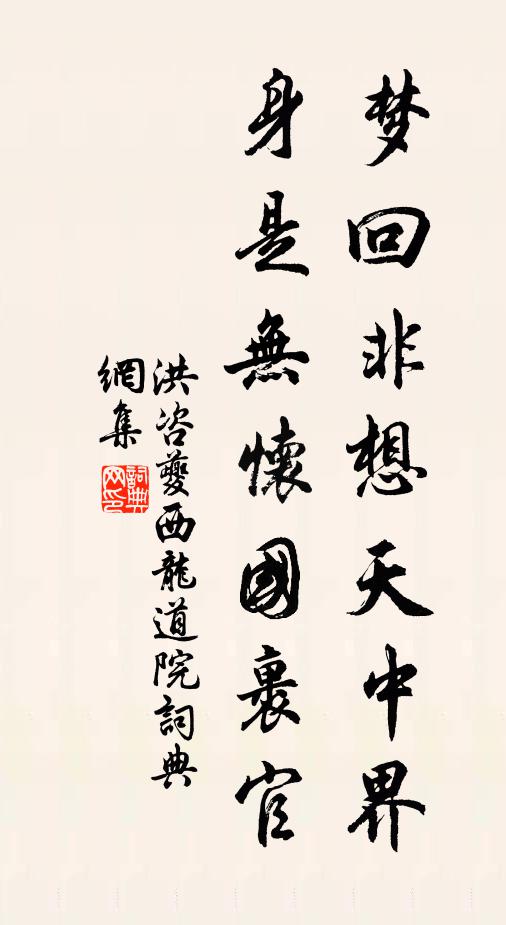 梦回非想天中界
身是無懷國裏官
洪咨夔西龍道院詞典
網集
詞典网印